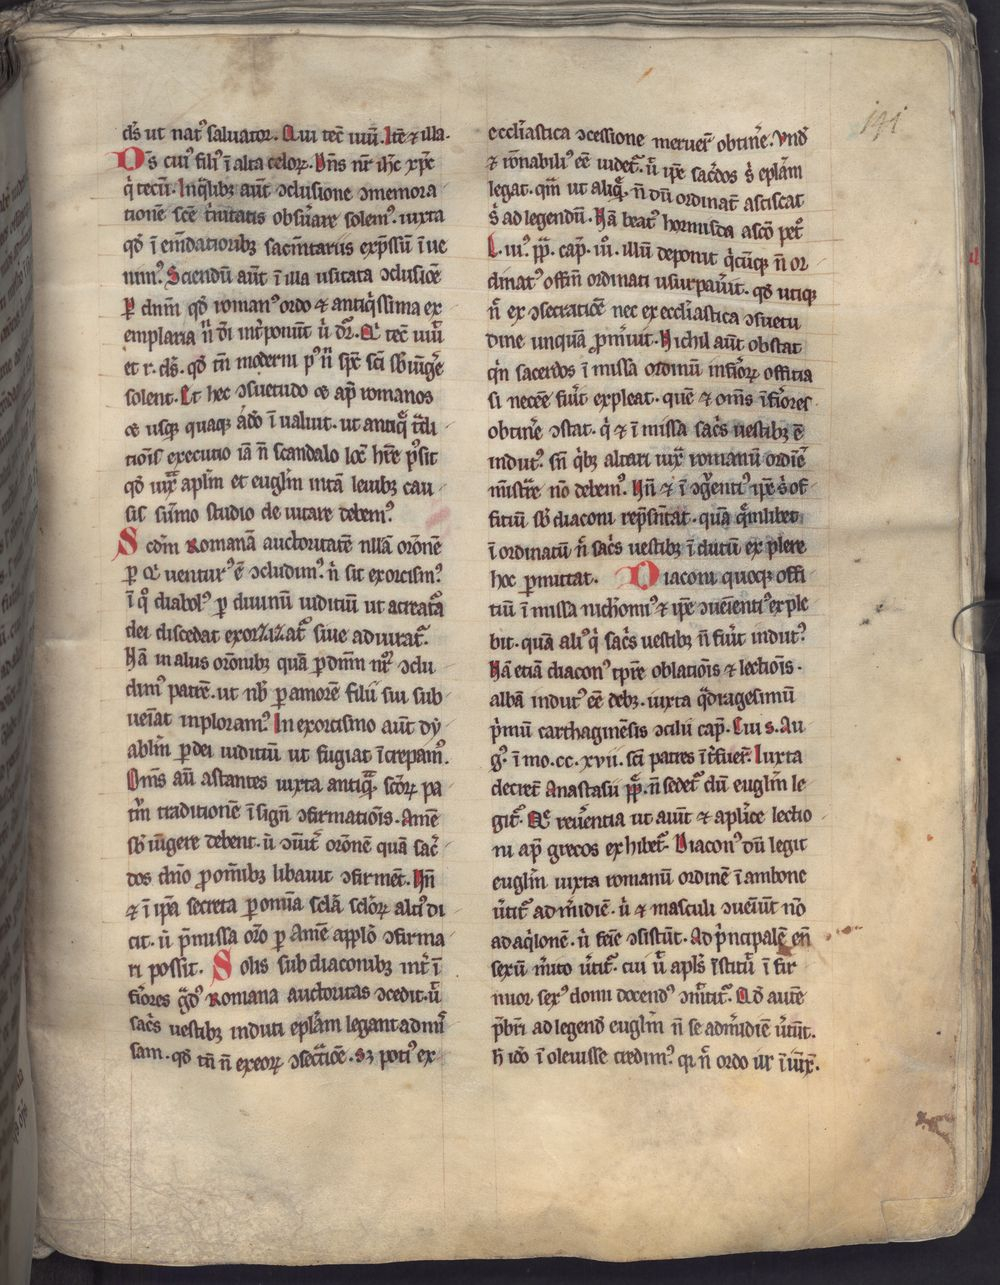 141
ds̄ ut nat᷒ saluator. Qui tec̄ uiuī. Itē ⁊ illa.
Ds̄ cui᷒ fili᷒ ī alta celoꝝ. Dn̄s nr̄ ih̄c xp̄c
q̇ tecū. Inq̇libꝫ aūt ꝯclusione ꝯmemora
tionē sc̄e t̄nitatis obs̄uare solem᷒. iuxta
qd̄ ī em̄datioribꝫ sac̄m̄tariis exp̄ssū īue
nim᷒. Sciendū aūt ī illa usitata ꝯclusiōe
ꝑ dn̄m̄ qd̄ roman᷒ ordo ⁊ antiq̇ssima ex
emplaria n̄ dī īt̄ponūt ū dr̄. Q tec̄ uiuī
et r. ds̄. qd̄ tn̄ moderni p᷒ n̄ sp̄c sc̄i sb̄iūḡe
solent. Et hec ꝯsuetudo ꝫ ap̄ romanos
ꝫ usqꝫ quaqꝫ ad̄o īualuit. ut antiq̄ t̄di
tiōis executio iā n̄ scandalo loc̄ hr̄e p᷒sit
qd̄ iux̄ ap̄lm̄ et euḡlm̄ intā leuibꝫ cau
sis sūmo studio de uitare debem᷒.
Scdm̄ Romanā auctoritatē nllā orōnē
ꝑ Q uentur᷒ ē ꝯcludim᷒. n̄ sit exorcism᷒.
ī q̊ diabol᷒ ꝑ diuinū iuditiū ut acreat᷒a
dei discedat exorzizat᷒ siue adiurat᷒.
Nā in aliis orōnibꝫ quā ꝑ dn̄m nr̄m ꝯclu
dim᷒ patrē. ut nob̄ ꝑ amorē filii sui sub
ueiat inploram᷒. In exorcismo aūt dy
ablm̄ ꝑ dei iuditiū ut fugiat īcrepam᷒.
Om̄s aū astantes iuxta antiq̄ꝝ sc̄oꝝ pa
tr̄m traditionē ī sign̄ ꝯfirmatiōis. Amē
sb̄iūgere debent. ū ꝯuīt᷒ orōnē quā sac̄
dos dn̄o ꝓ om̄ibꝫ libauit ꝯfirmēt. Hn̄
⁊ ī ip̄a secreta ꝑ om̄ia sc̄la sc̄loꝝ alti᷒ di
cit. ū p̄missa orō ꝑ Amē app̄lo᷒ ꝯfirma
ri possit. Solis subdiaconibꝫ int̄ ī
fiōres ḡd᷒ Romana auctoritas ꝯcedit. ū
sac̄s uestibꝫ induti ep̄lam legant ad mis
sam. qd̄ tn̄ n̄ ex eoꝝ ꝯsec̄tiōe. sꝫ poti᷒ ex
ecclīastica ꝯcessione meruer̄ obtin̄e. Vnd̄
⁊ rōnabili᷒ eē uidet᷒. ū ip̄e sac̄dos s̄ ep̄lam
legat. qm̄ ut aliq̊ n̄ dū ordinat᷒ asciscat
s̄ ad legendū. Nā beat᷒ hormisda asc̄o pet᷒
L. iu᷒. pp̄. cap̄. iii᷒. illū deponit q̇cūqꝫ n̄ or
dinat᷒ offm̄ ordinati usurpauīt. qd̄ utiqꝫ
n̄ ex ꝯsecratiōe nec ex ecclīastica ꝯsuetu
dine unquā ꝓm̄uit. Nichil aūt obstat
qn̄ sacerdos ī missa ordinū infiōꝝ offitia
si necēe fuīt expleat. quē ⁊ om̄s īfiōres
obtin̄e ꝯstat. q̇ ⁊ ī missa sac̄s uestibꝫ ē
indut᷒. sn̄ q̇bꝫ altari iux̄ romanū ordiēē
mīstr̄e nō debem᷒. Hn̄ ⁊ ī ꝯḡenti᷒ ip̄e s̄ of
fitiū sb̄diaconi rep̄sn̄tat. quā q̄mlibet
īordinatū n̄ sac̄s uestibꝫ īdutū explere
hoc ꝑmittat. Diaconi quoqꝫ offi
tiū ī missa nichomi᷒ ⁊ ip̄e ꝯueīenti᷒ exple
bit. quā ali᷒ q̇ sac̄s uestibꝫ n̄ fuīt indut᷒
Nā etiā diacon᷒ tp̄re oblatiōis ⁊ lectiōis.
albā indut᷒ eē debꝫ. iuxta q̄dragesimū
p̄mū carthaginēsis ꝯcilii cap̄. Cui s. Au
g᷒. ī mo. cc. xvii. sc̄i patres īt̄fuer̄. Iuxta
decret̄ Anastasii pp̄. n̄ sedet᷒ dū euḡlm̄ le
git᷒. Q reuēentia ut auīt ⁊ ap̄lice lectio
ni ap̄ grecos exhibet᷒. Diacon᷒ dū legit
euḡlm̄ iuxta romanū ordinē ī ambone
ūtit᷒ ad m̄idiē. ū ⁊ masculi ꝯueiūt nō
ad aq̇lonē. ū feīe ꝯsistūt. Ad p̄ncipalē en̄
sexū m̄ito ūtit᷒. cui ū ap̄ls īstitū ī fir
mior sex᷒ domi docend᷒ ꝯmītit᷒. Ad autē
p̄bri ad legend̄ euḡlm̄ n̄ se ad m̄idiē ūtūt.
h ido īoleuisse credim᷒. qr n̄ ordo ur̄ īiux̄.